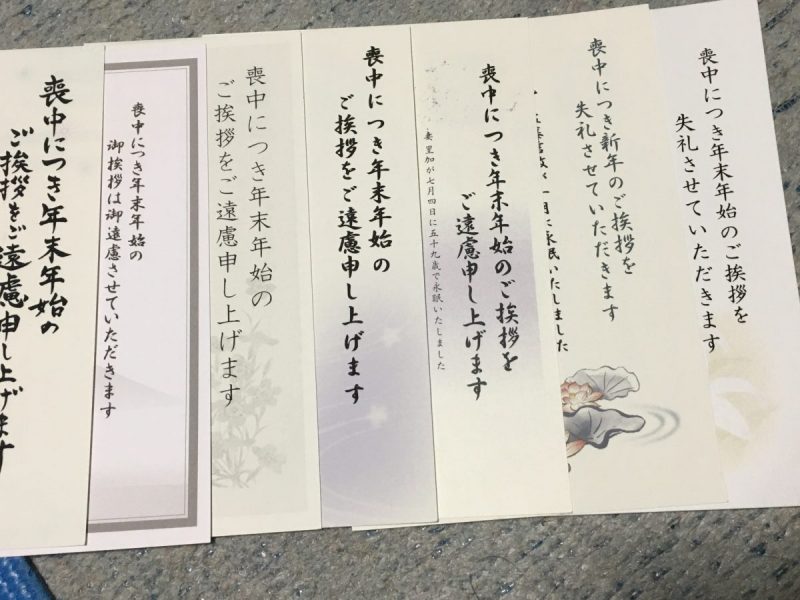 喪中につき年末年始のご挨拶を
失礼させていただきます
喪中につき新年のご挨拶を
失礼させていただきます
月に永眠いたしました
喪中につき年末年始のご挨拶を
ご遠慮申し上げます
妻 里加が七月四日に五十九歳で永眠いたしました
喪中につき年末年始の
ご挨拶をご遠慮申し上げます
喪中につき年末年始の
ご挨拶をご遠慮申し上げます
喪中につき年末年始の
御挨拶は御遠慮させていただきます
喪中につき年末年始の
ご挨拶をご遠慮申し上げます